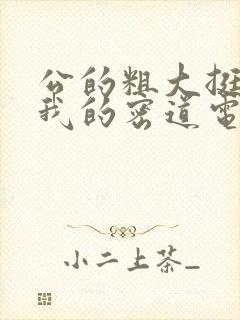 公的粗大挺
我的密道电
小二上茶_